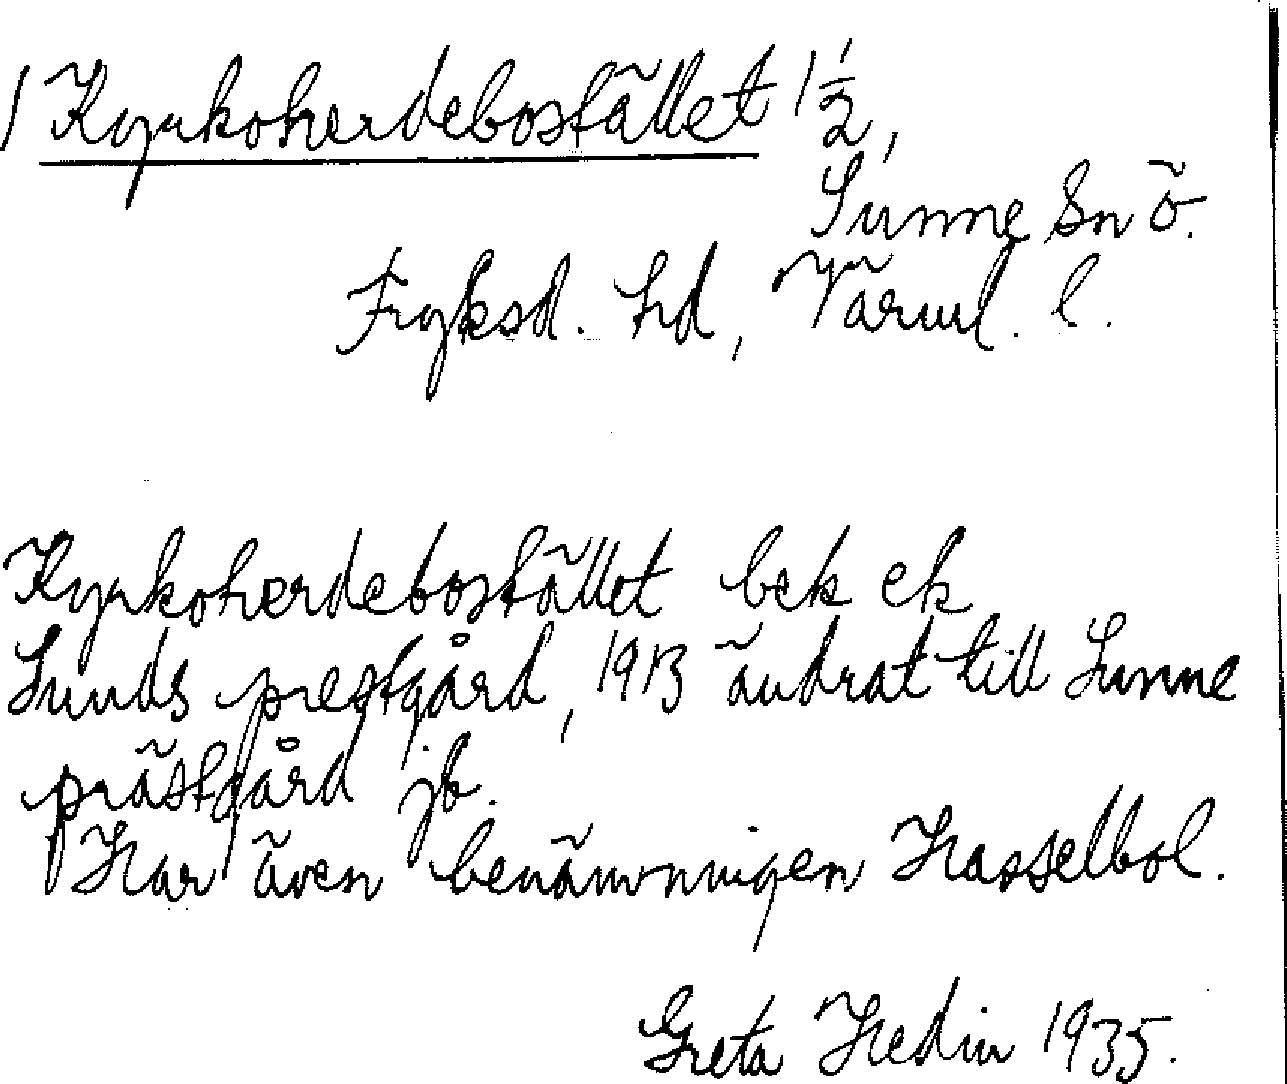 1 Kyrkoherdebostället 1 1/2,
Sunne Sn Ö.
Fryksd. hd, Värml. l.
Kyrkoherdebostället bek ek
Lunds prestgård, 1913 ändrat till Sunne
prästgård jb.
Har även benämningen Hasselbol.
Greta Hedin 1935.